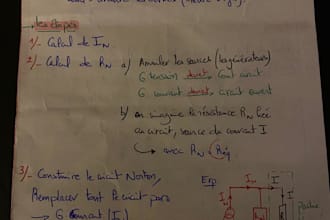 les étapes
1/- Calcul de I_N
2/- Calcul de R_N a) Annuler les sources (les générateurs)
G tension devient court circuit
G courant devient circuit ouvert
b) on imagine la résistance R_N
un circuit, source de courant I
→ avec R_N = Réq
3/- Construire le circuit Norton, Exp
Remplacer tout le circuit par
→ G Courant (I_N)
I_N
I